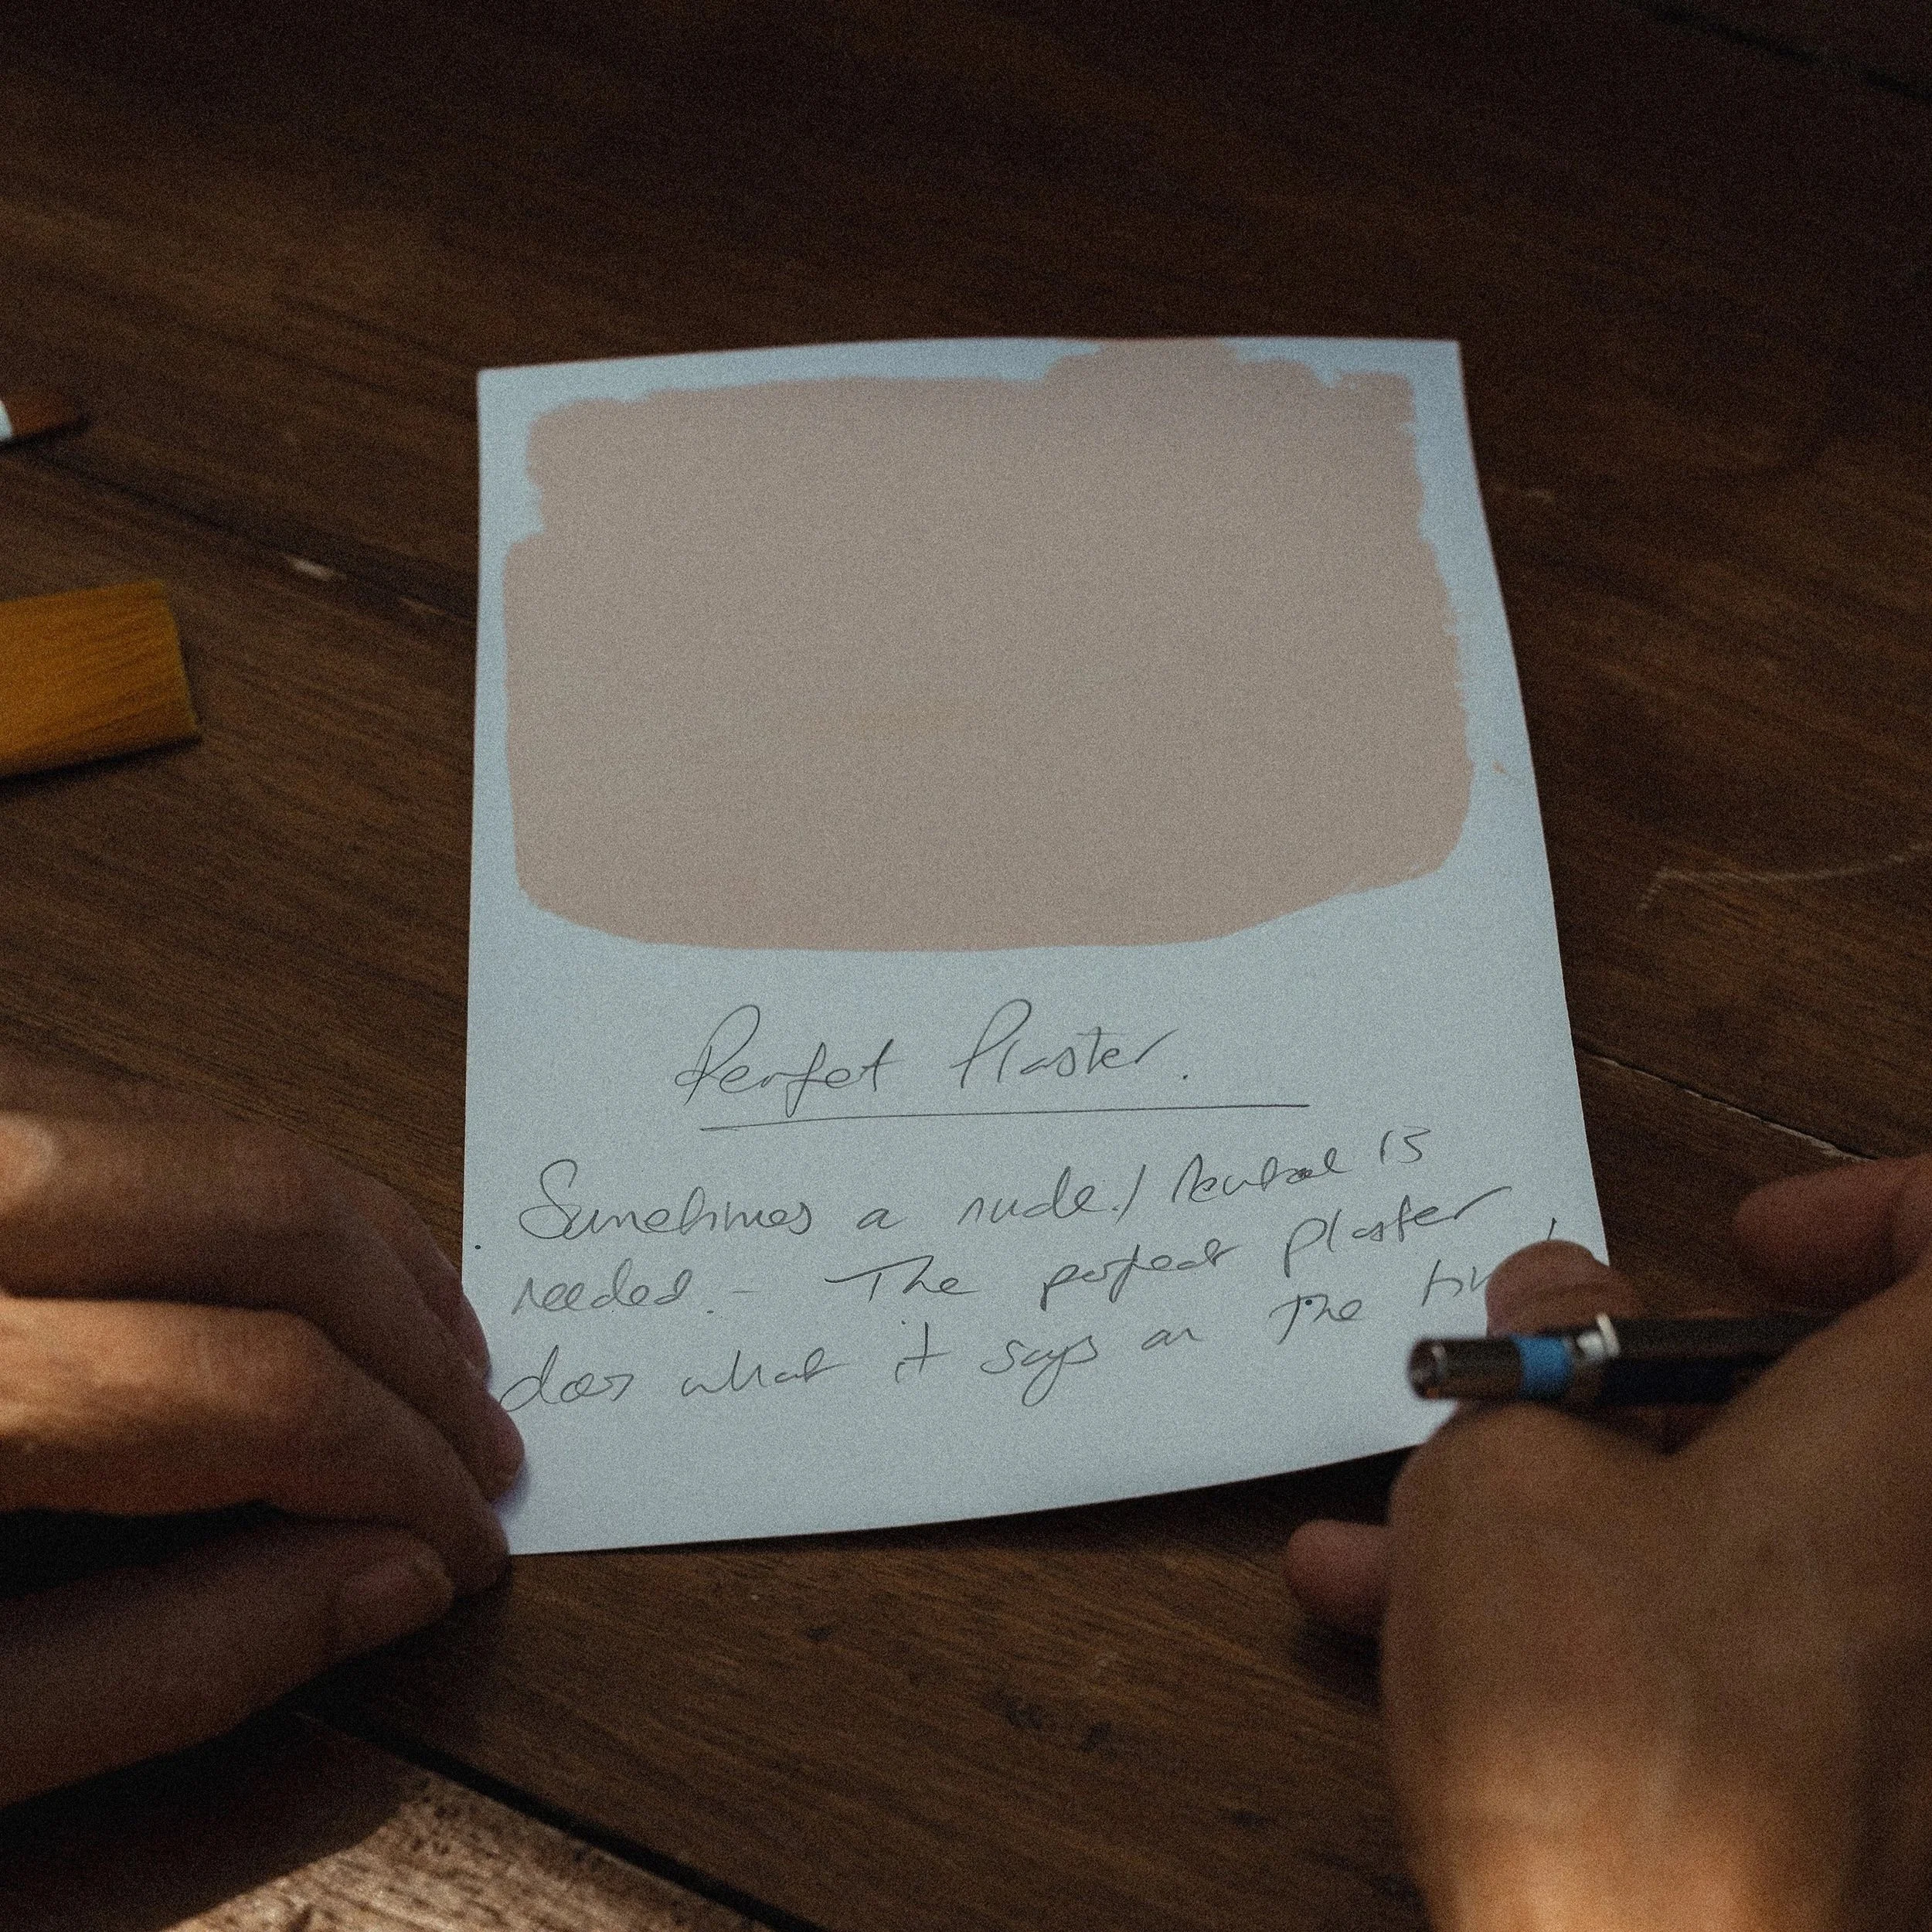 Perfect Plaster.
Sometimes a nude / neutral is
needed. - The perfect plaster
does what it says on the